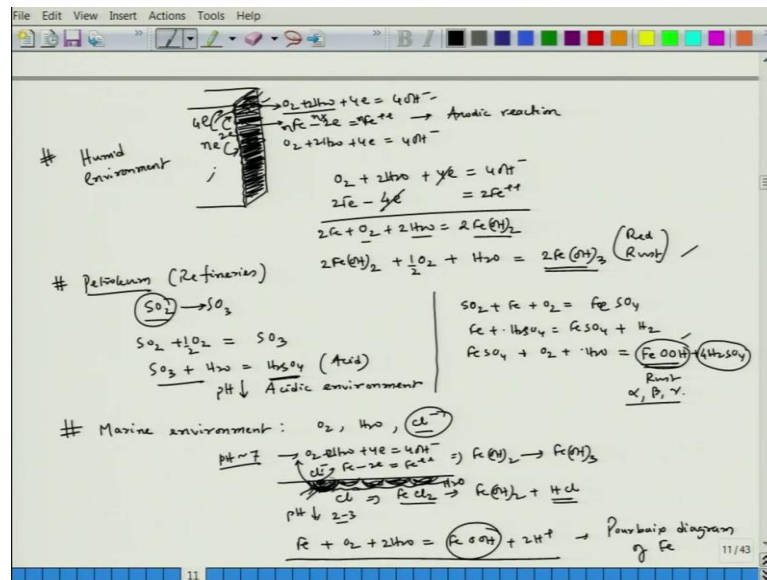 File Edit View Insert Actions Tools Help
B I
O2+2H2O + 4e = 4OH-
4e
nFe - n2e = nFe++ → Anodic reaction
2e
ne
O2+2H2O+4e = 4OH-
# Humid Environment ;
O2 + 2H2O + 4e = 4OH-
2Fe - 4e = 2Fe++
2Fe + O2 + 2H2O = 2Fe(OH)2
2Fe(OH)2 + 1/2O2 + H2O = 2Fe(OH)3 (Red Rust)
# Petroleum (Refineries)
SO2 → SO3
SO2 + 1/2O2 = SO3
SO3 + H2O = H2SO4 (Acid)
pH↓ Acidic environment
SO2 + Fe + O2 = FeSO4
Fe + H2SO4 = FeSO4 + H2
FeSO4 + O2 + H2O = FeOOH + 4H2SO4
Rust
α, β, γ.
# Marine environment : O2, H2O, Cl-
pH~7 → O2 + 2H2O + 4e = 4OH-
Cl- Fe - 2e = Fe++ ⇒ Fe(OH)2 → Fe(OH)3
Cl ⇒ FeCl2 H2O→ Fe(OH)2 + HCl
pH↓ 2-3
Fe + O2 + 2H2O = FeOOH + 2H+ → Pourbaix diagram of Fe
11/43
11